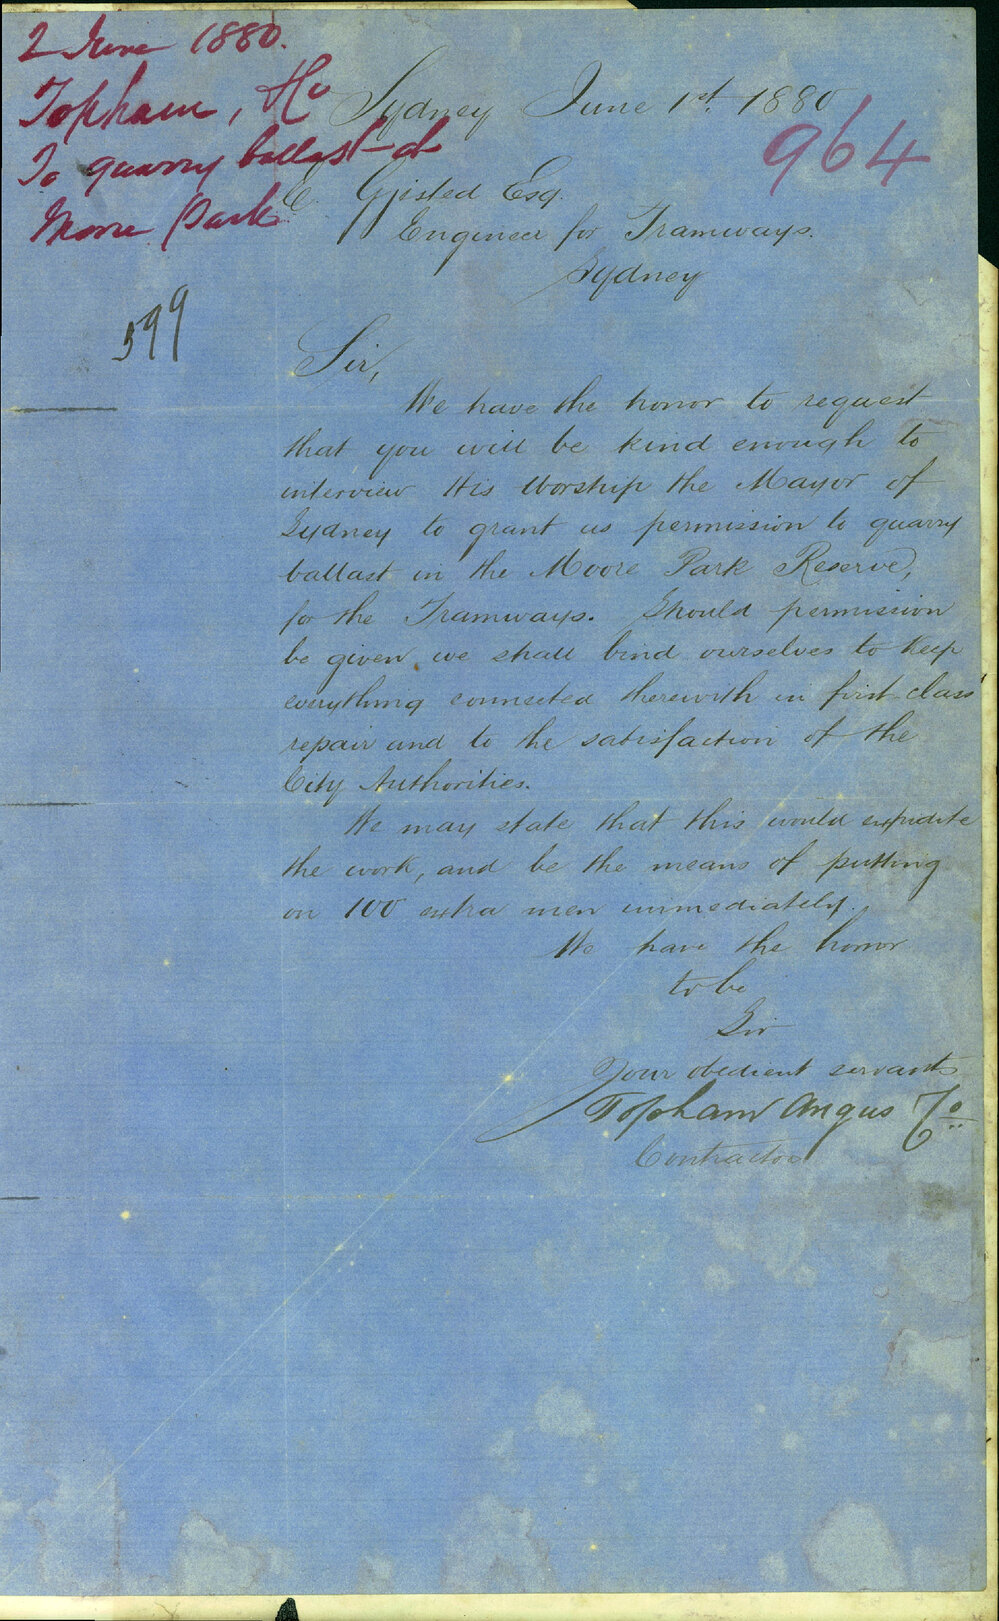 2 June 1880.
Topham, Ho
To quarry ballast at
Moore Park
964
599
Sydney June 1st 1880
C. Gjisted Esq.
Engineer for Tramways.
Sydney
Sir,
We have the honor to request
that you will be kind enough to
interview His Worship the Mayor of
Sydney to grant us permission to quarry
ballast in the Moore Park Reserve,
for the Tramways. Should permission
be given we shall bind ourselves to keep
everything connected therewith in first class
repair and to the satisfaction of the
City Authorities.
We may state that this would expedite
the work, and be the means of putting
on 100 extra men immediately.
We have the honor
to be
Sir
Your obedient servants
Topham Angus & Co
Contractors